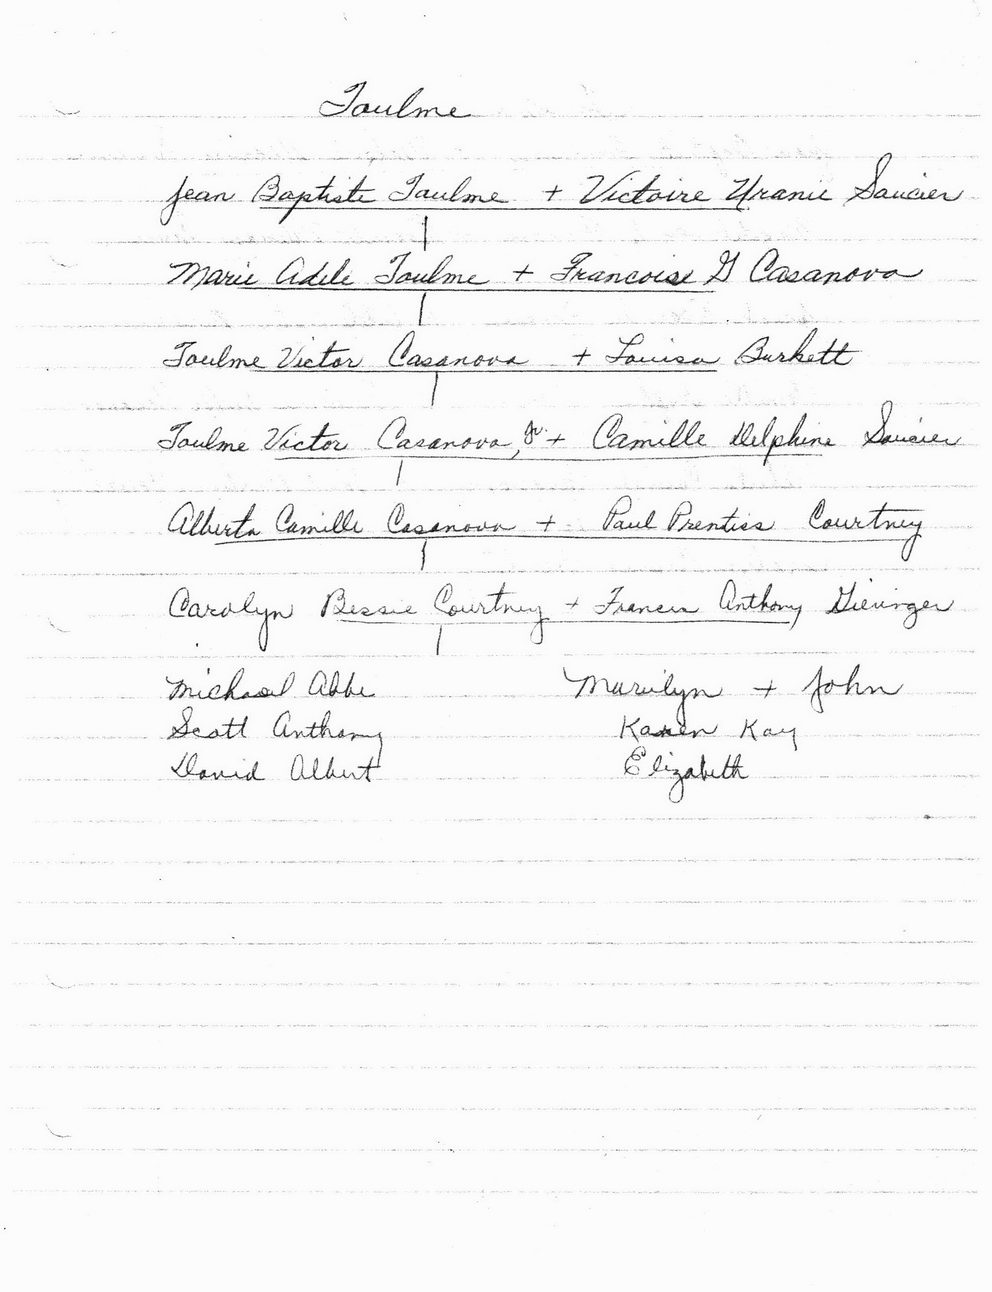 Toulme
Jean Baptiste Toulme + Victoire Uranie Saucier
Marie Adele Toulme + Francoise G Casanova
Toulme Victor Casanova + Louisa Burkett
Toulme Victor Casanova, Jr. + Camille Delphine Saucier
Alberta Camille Casanova + Paul Prentiss Courtney
Carolyn Bessie Courtney + Francis Anthony Gieringer
Michael Abbe Marilyn + John
Scott Anthony Karen Kay
David Albert Elizabeth